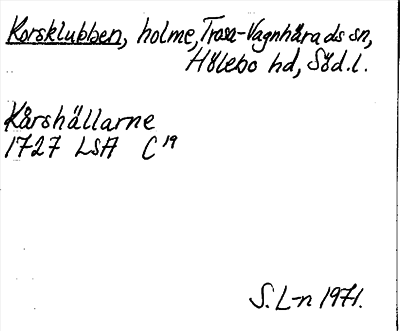 Korsklubben, holme, Trosa-Vagnhärads sn,
Hölebo hd, Söd.l.
Kårshällarne
1727 LSA C19
S. L-n 1971.